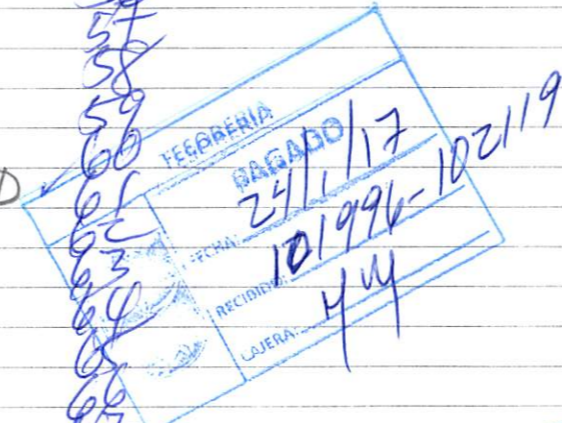 57
58
59
60
61
62
63
64
65
66
67
D
TESORERIA
PAGADO
FECHA: 24/1/17
RECIBIDO: 101996-102119
CAJERA: